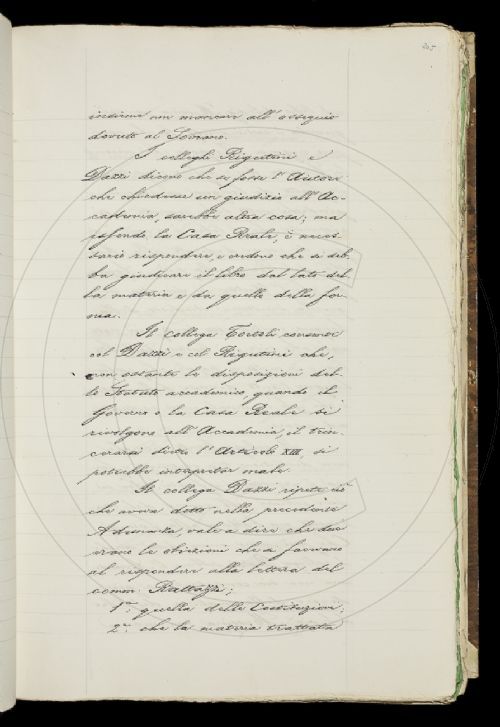 205
insieme non mancare all'ossequio
dovuto al Sovrano.
I colleghi Rigutini e
Dazzi dicono che se fosse l'Autore
che chiedesse un giudizio all'Ac-
cademia, sarebbe altra cosa; ma
essendo la Casa Reale, è neces-
sario rispondere, e credono che si deb-
ba giudicare il libro dal lato del-
la materia e da quello della for-
ma.
Il collega Tortoli consente
col Dazzi e col Rigutini che,
non ostante le disposizioni del-
lo Statuto accademico, quando il
Governo o la Casa Reale si
rivolgono all'Accademia, il trin-
cerarsi dietro l'Articolo XIII, si
potrebbe interpretar male.
Il collega Dazzi ripete ciò
che aveva detto nella precedente
Adunanza, vale a dire che due
erano le obiezioni che si facevano
al rispondere alla lettera del
comm. Rattazzi;
1ª quella delle Costituzioni;
2ª che la materia trattata